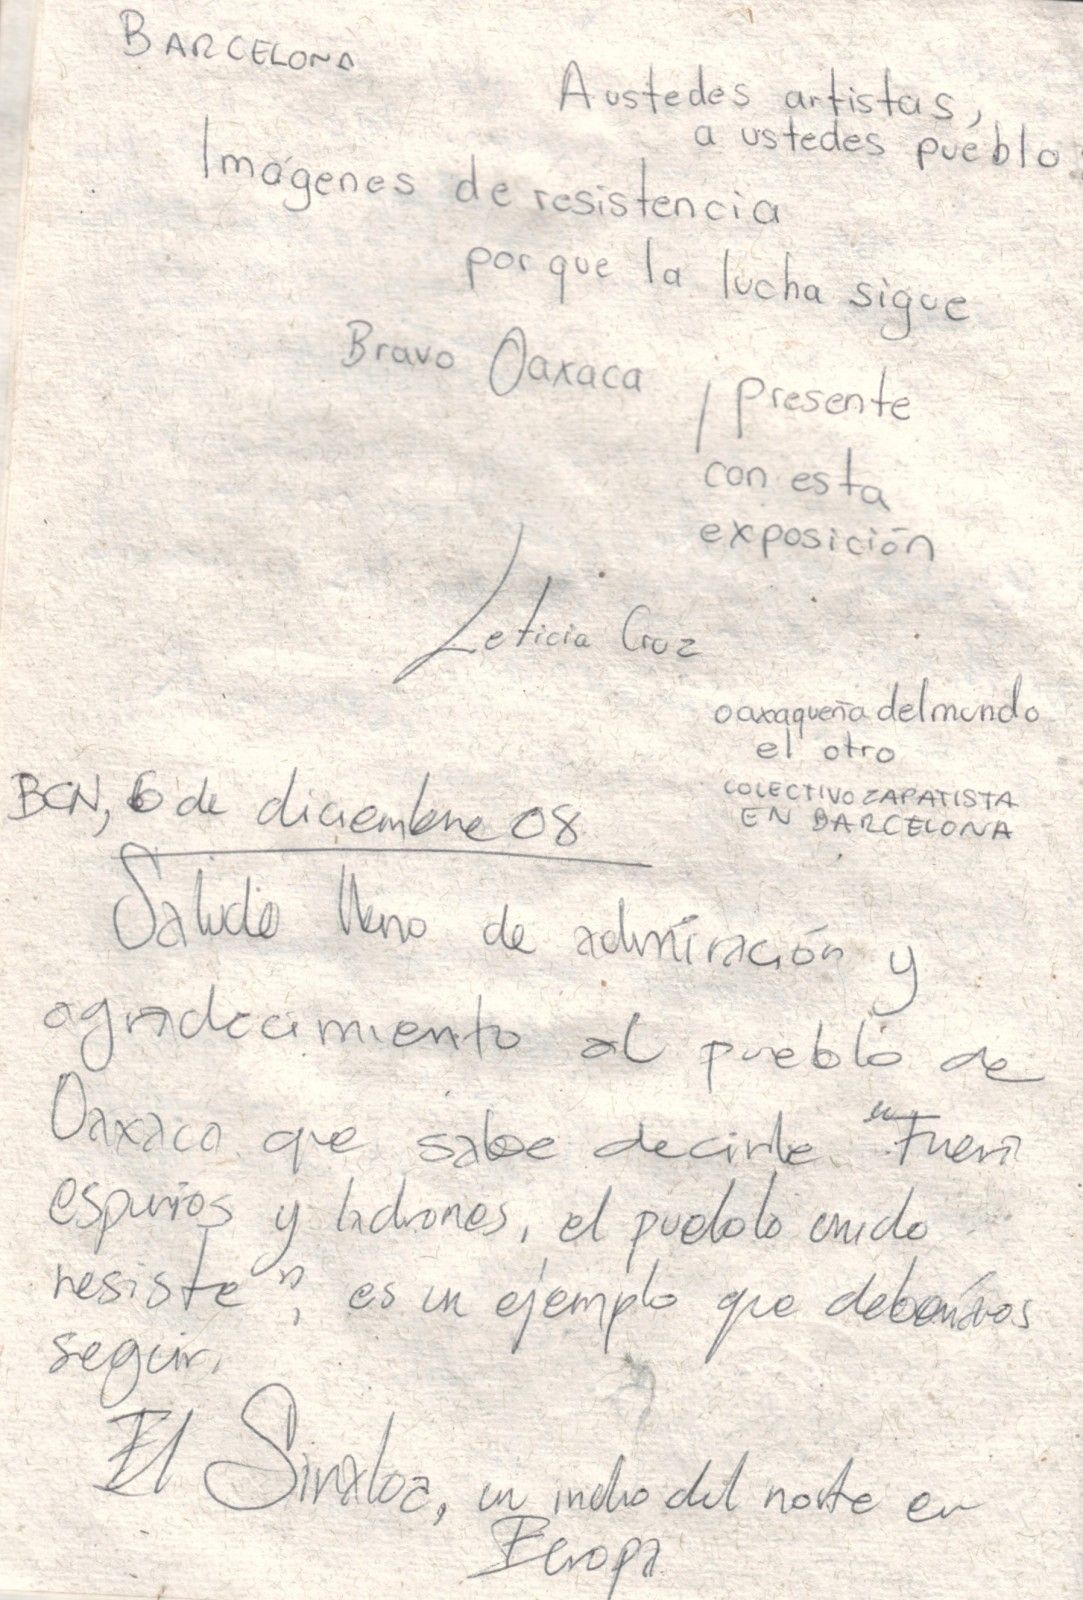 BARCELONA
A ustedes artistas,
a ustedes pueblo:
Imágenes de resistencia
porque la lucha sigue
Bravo Oaxaca, presente
con esta
exposición
Leticia Cruz
oaxaqueña del mundo
el otro
COLECTIVO ZAPATISTA
EN BARCELONA
BCN, 6 de diciembre 08
Saludo lleno de admiración y
agradecimiento al pueblo de
Oaxaca que sabe decirle "Fuera
espurios y ladrones, el pueblo unido
resiste", es un ejemplo que debemos
seguir.
El Sinaloa, un indio del norte en
Europa